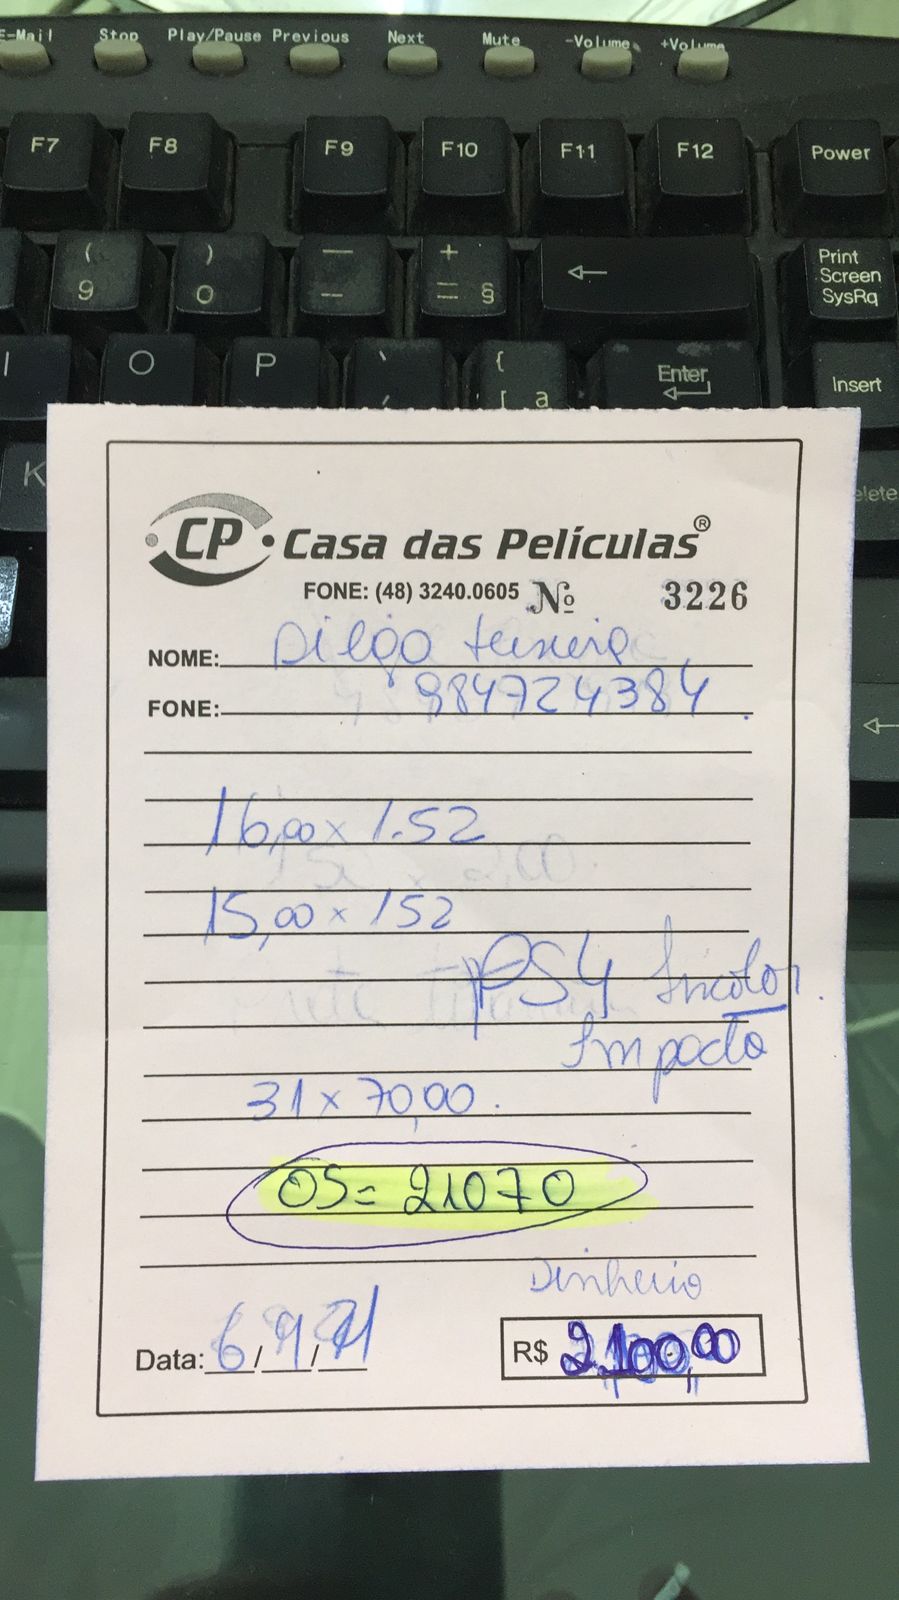 E-Mail Stop Play/Pause Previous Next Mute -Volume +Volume
F7 F8 F9 F10 F11 F12 Power
( 9 ) 0 — – + = § ← Print Screen SysRq
I O P ` ' { [ a Enter Insert
K elete
CP Casa das Películas®
FONE: (48) 3240.0605 Nº 3226
NOME: Diego Teixeira
FONE: 984724384
16,00 x 1.52
15,00 x 152
PS4 Incolor.
Impacto
31 x 70,00.
OS = 21070
Dinheiro
Data: 6/9/21
R$ 2.100,00